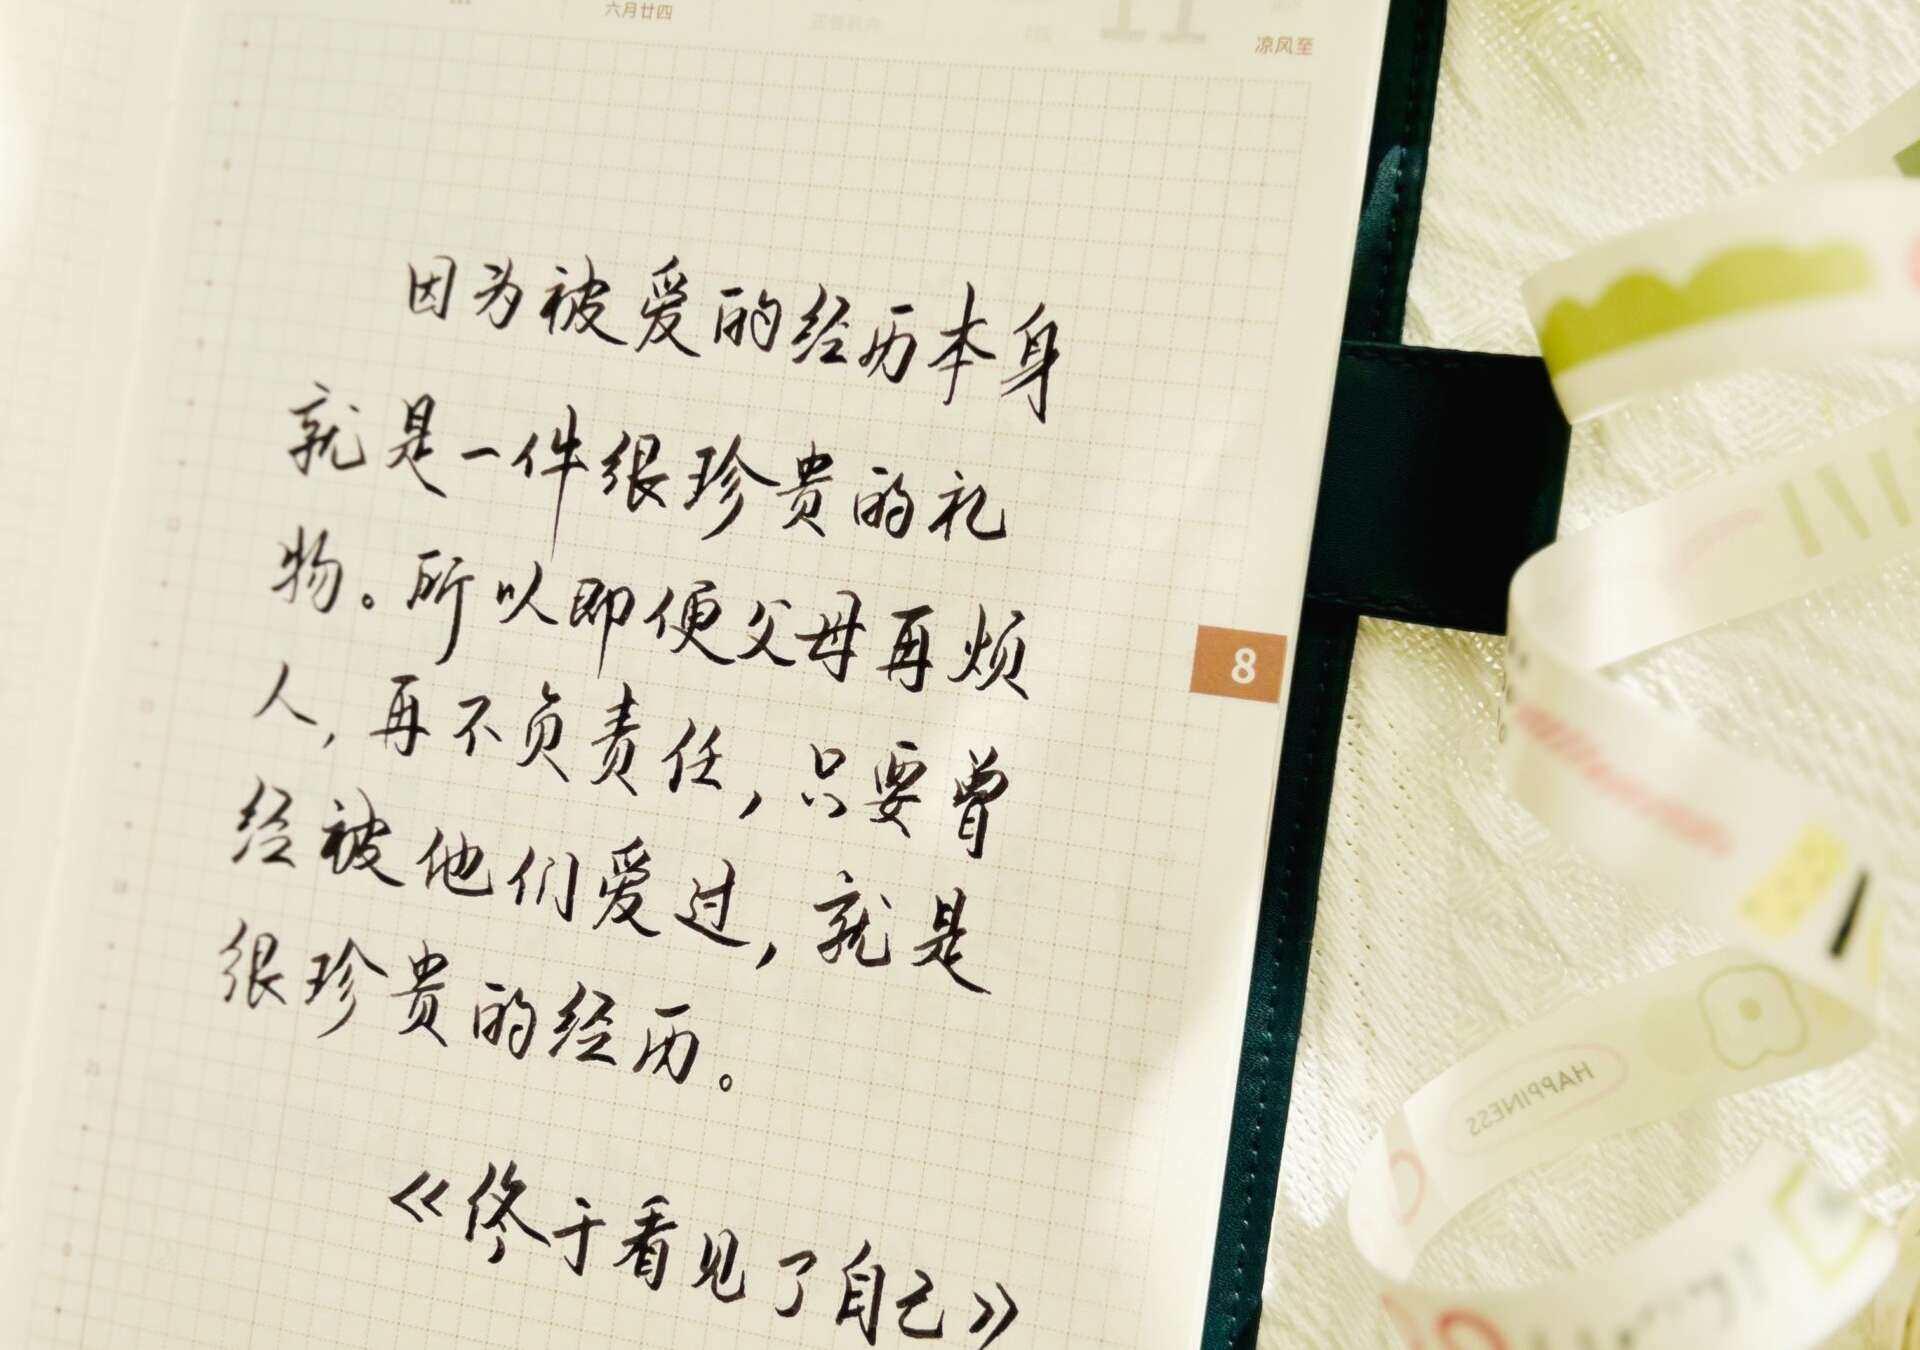 六月廿四
11
凉风至
因为被爱的经历本身
就是一件很珍贵的礼
物。所以即便父母再烦
人，再不负责任，只要曾
经被他们爱过，就是
很珍贵的经历。
《终于看见了自己》
8
HAPPINESS